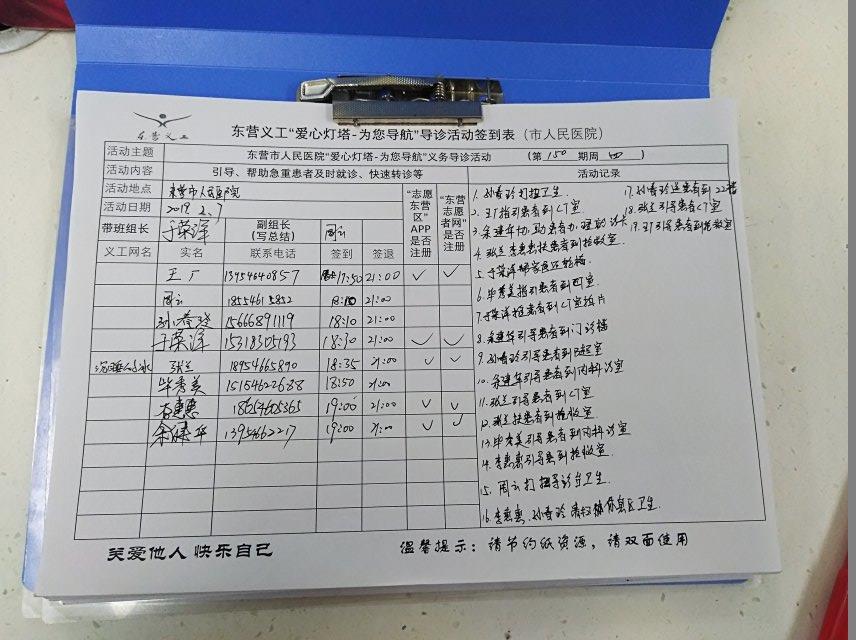 东营义工
东营义工“爱心灯塔-为您导航”导诊活动签到表（市人民医院）
活动主题 东营市人民医院“爱心灯塔-为您导航”义务导诊活动 （第 150 期周 四 ）
活动内容 引导、帮助急重患者及时就诊、快速转诊等 活动记录
活动地点 东营市人民医院
活动日期 2019.2.7
带班组长 于荣洋 副组长（写总结） 周云
“志愿东营区”APP是否注册 “东营志愿者网”是否注册
义工网名 实名 联系电话 签到 签退
王广 13954640857 17:50 21:00 ✓ ✓
周云 18554615852 18:10 21:00
孙春玲 15666891119 18:10 21:00
于荣洋 15318305193 18:30 21:00 ✓ ✓
张兰 18954665890 18:35 21:00 ✓ ✓
毕秀美 15154622688 18:50 21:00
李惠惠 18654605365 19:00 21:00 ✓ ✓
余建华 13954662217 19:00 21:00 ✓ ✓
1. 孙春玲打扫卫生.
2. 王广指引患者到CT室
4. 张兰 李惠惠扶患者到抢救室.
5. 于荣洋帮家属还轮椅
6. 毕秀美指引患者到四室.
7. 于荣洋推患者到CT室拍片
8. 余建华引导患者到门诊楼
9. 孙春玲引导患者到B超室
10. 余建华引导患者到内科诊室
11. 张兰引导患者到CT室
12. 张兰扶患者到抢救室.
13. 毕秀美引导患者到内科诊室
14. 李惠惠引导患者到抢救室.
15. 周云打扫导诊台卫生.
16. 李惠惠、孙春玲 休息区卫生.
17. 孙春玲送患者到22楼
18. 张兰引导患者CT室
19. 王广引导患者到抢救室
关爱他人 快乐自己
温馨提示：请节约纸资源，请双面使用